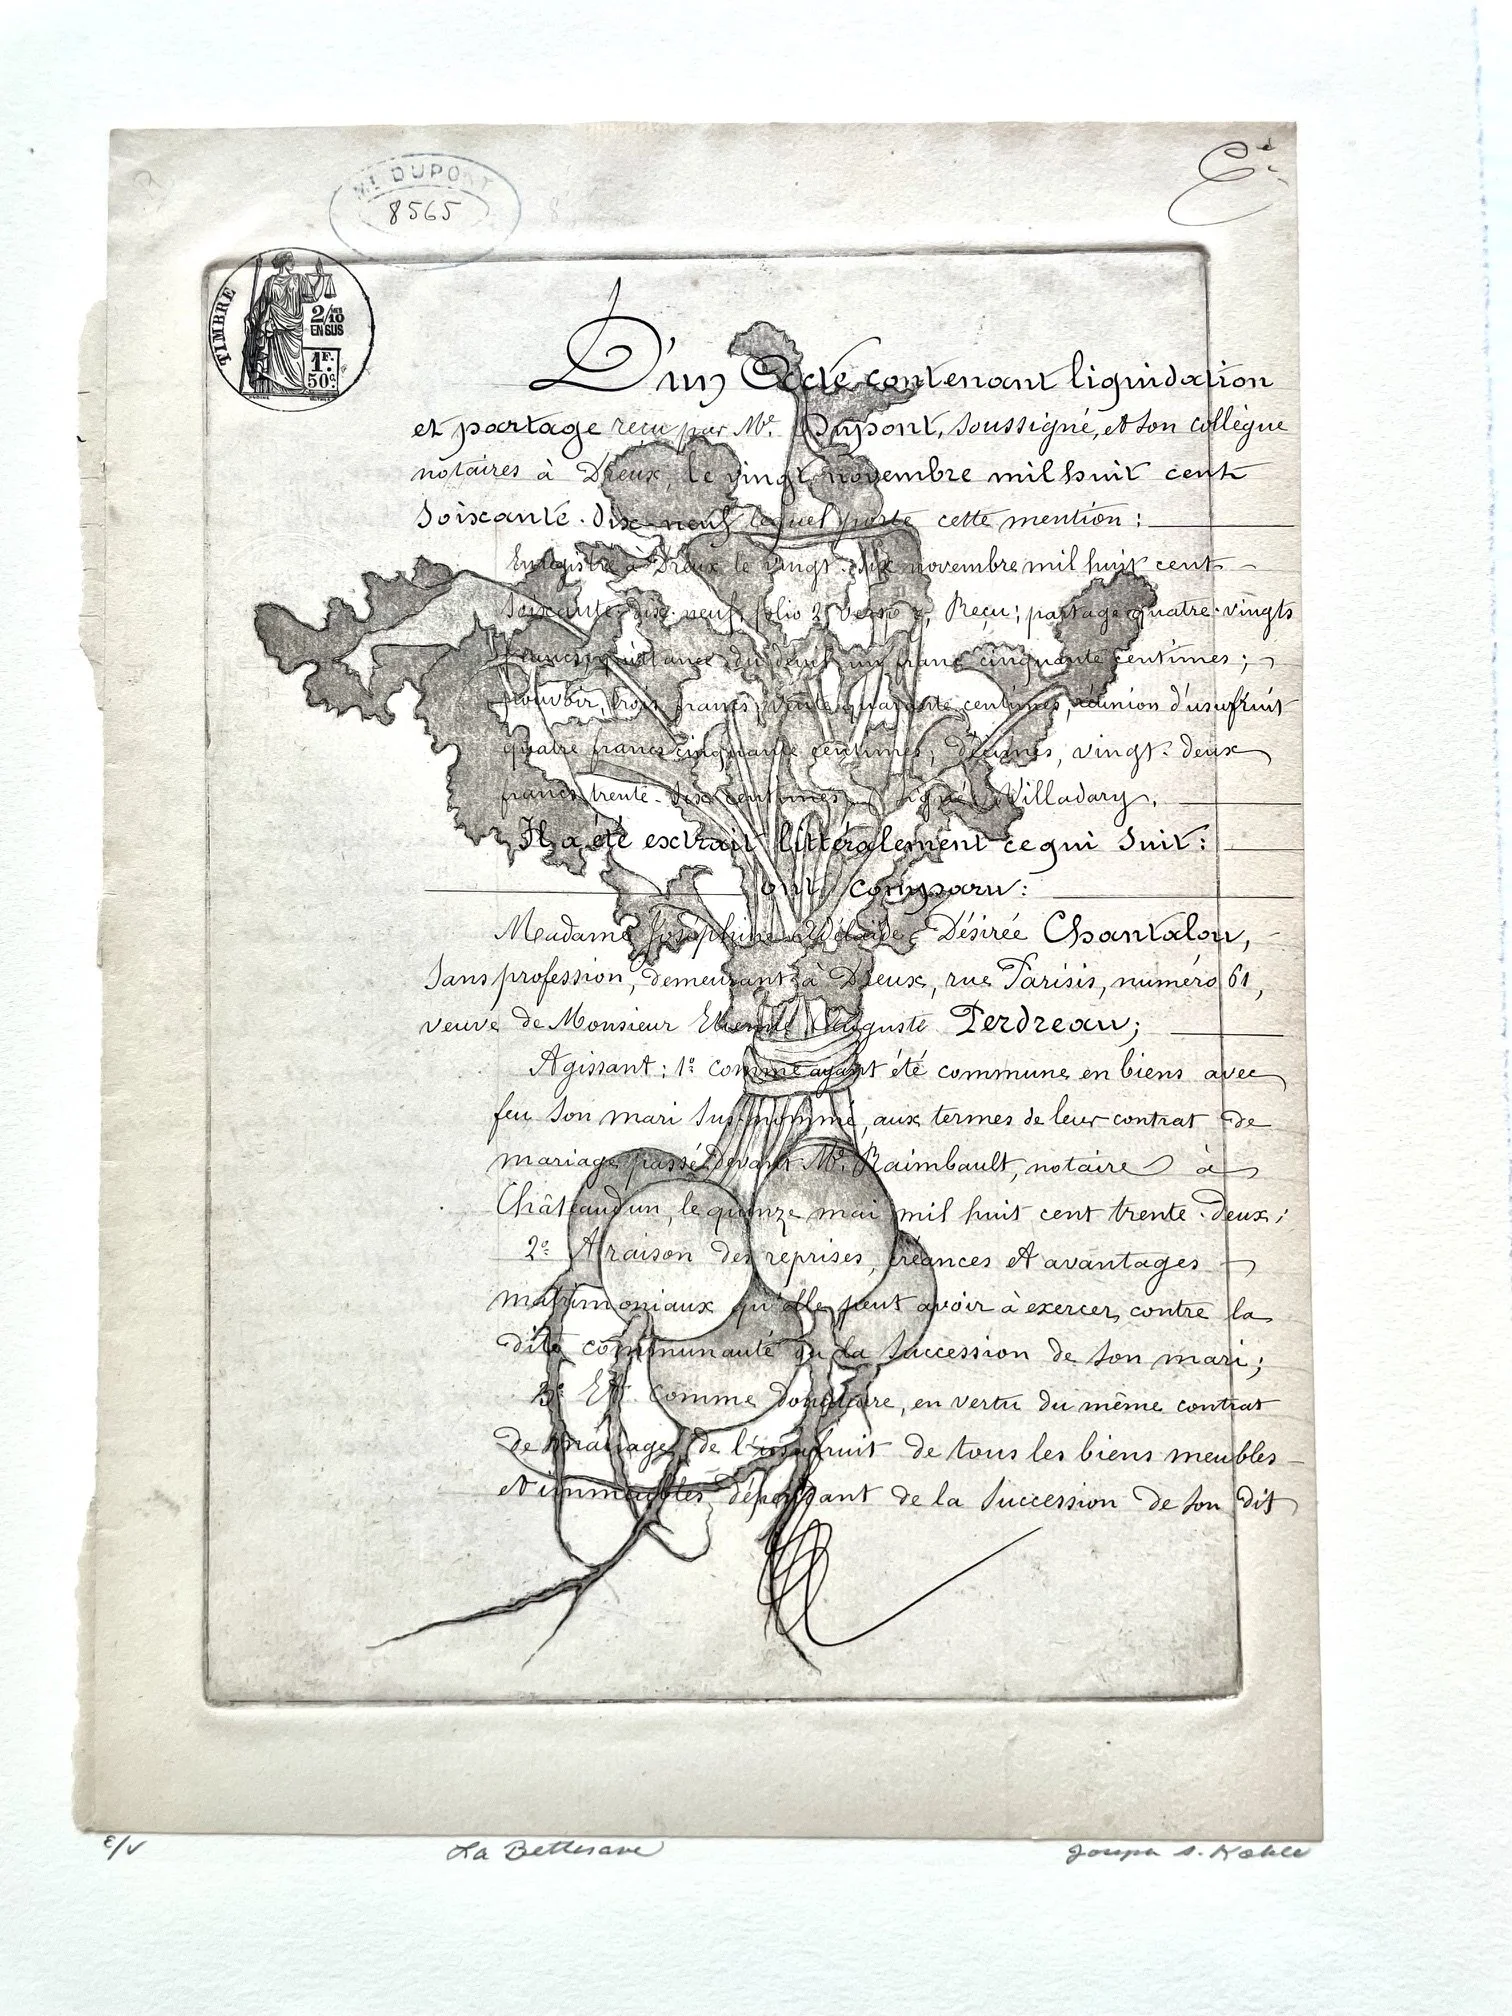 Me DUPONT
8565
TIMBRE
2/10
EN SUS
1F.
50c
D'un Acte contenant liquidation
et partage reçu par Me. Dupont, soussigné, et son collègue
notaires à Dreux, le vingt novembre mil huit cent
soixante-dix-neuf lequel porte cette mention :
Enregistré à Dreux le vingt-six novembre mil huit cent
soixante-dix-neuf, folio 2 verso Reçu ; partage quatre-vingts
francs, quittance du un franc cinquante centimes ;
pouvoir, trois francs, vente quarante centimes, réunion d'usufruit
quatre francs cinquante centimes ; décimes, vingt-deux
francs trente-six centimes. Signé Villadary.
Il a été extrait littéralement ce qui suit :
ont comparu :
Madame Joséphine Adélaïde Désirée Chantalou,
sans profession, demeurant à Dreux, rue Parisis, numéro 61,
veuve de Monsieur Etienne Auguste Perdreau ;
Agissant : 1º comme ayant été commune en biens avec
feu son mari sus-nommé, aux termes de leur contrat de
mariage passé devant Me. Raimbault, notaire à
Châteaudun, le quinze mai mil huit cent trente-deux ;
2º A raison des reprises, créances et avantages
matrimoniaux qu'elle peut avoir à exercer contre la
dite communauté ou la succession de son mari ;
3º Et comme donataire, en vertu du même contrat
de mariage, de l'usufruit de tous les biens meubles
et immeubles dépendant de la succession de son dit
E/V La Betterave Joseph S. Kohle